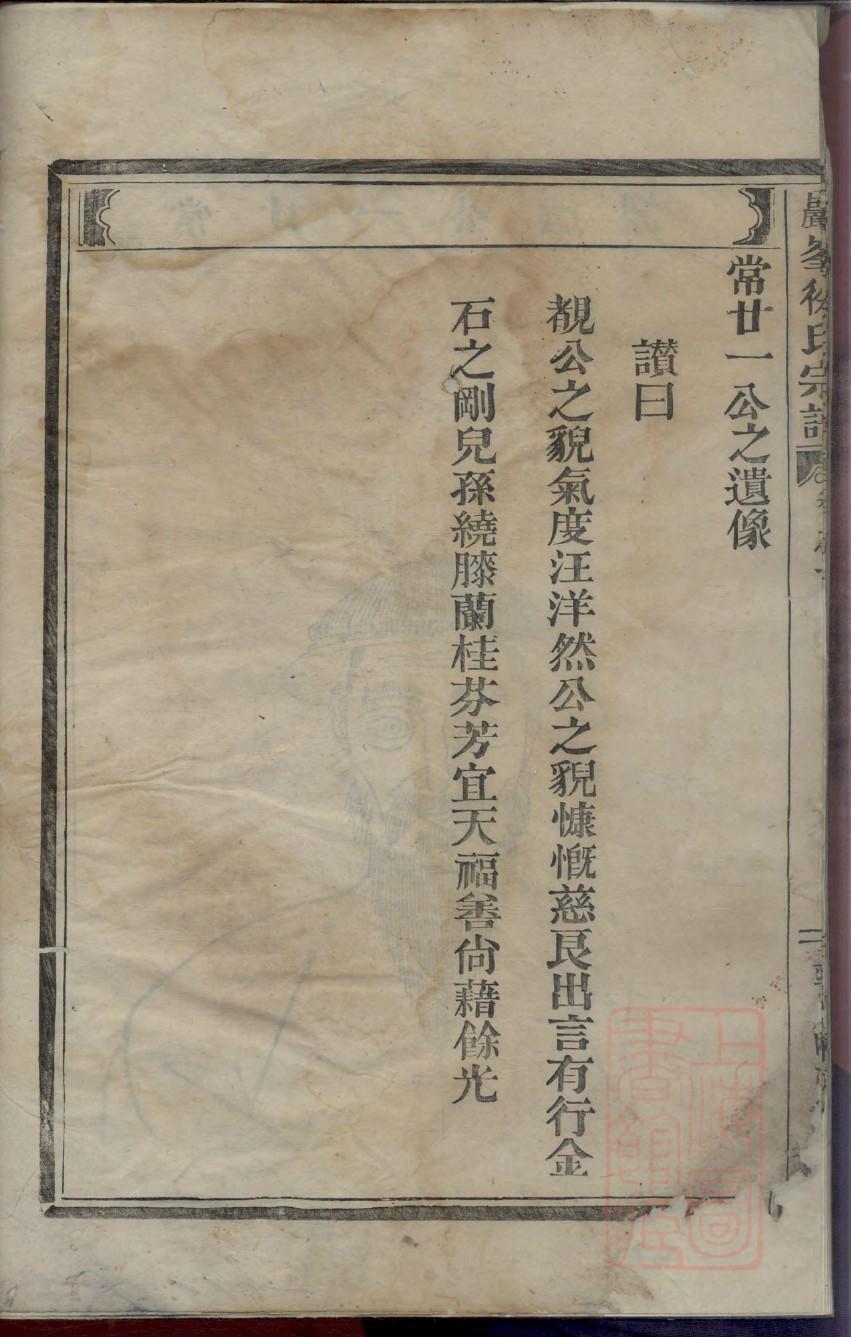 巖峯徐氏宗譜
常廿一公之遺像
讃曰
覩公之貌氣度汪洋然公之貌慷慨慈良出言有行金
石之剛兒孫繞膝蘭桂芬芳宜天福善尙藉餘光